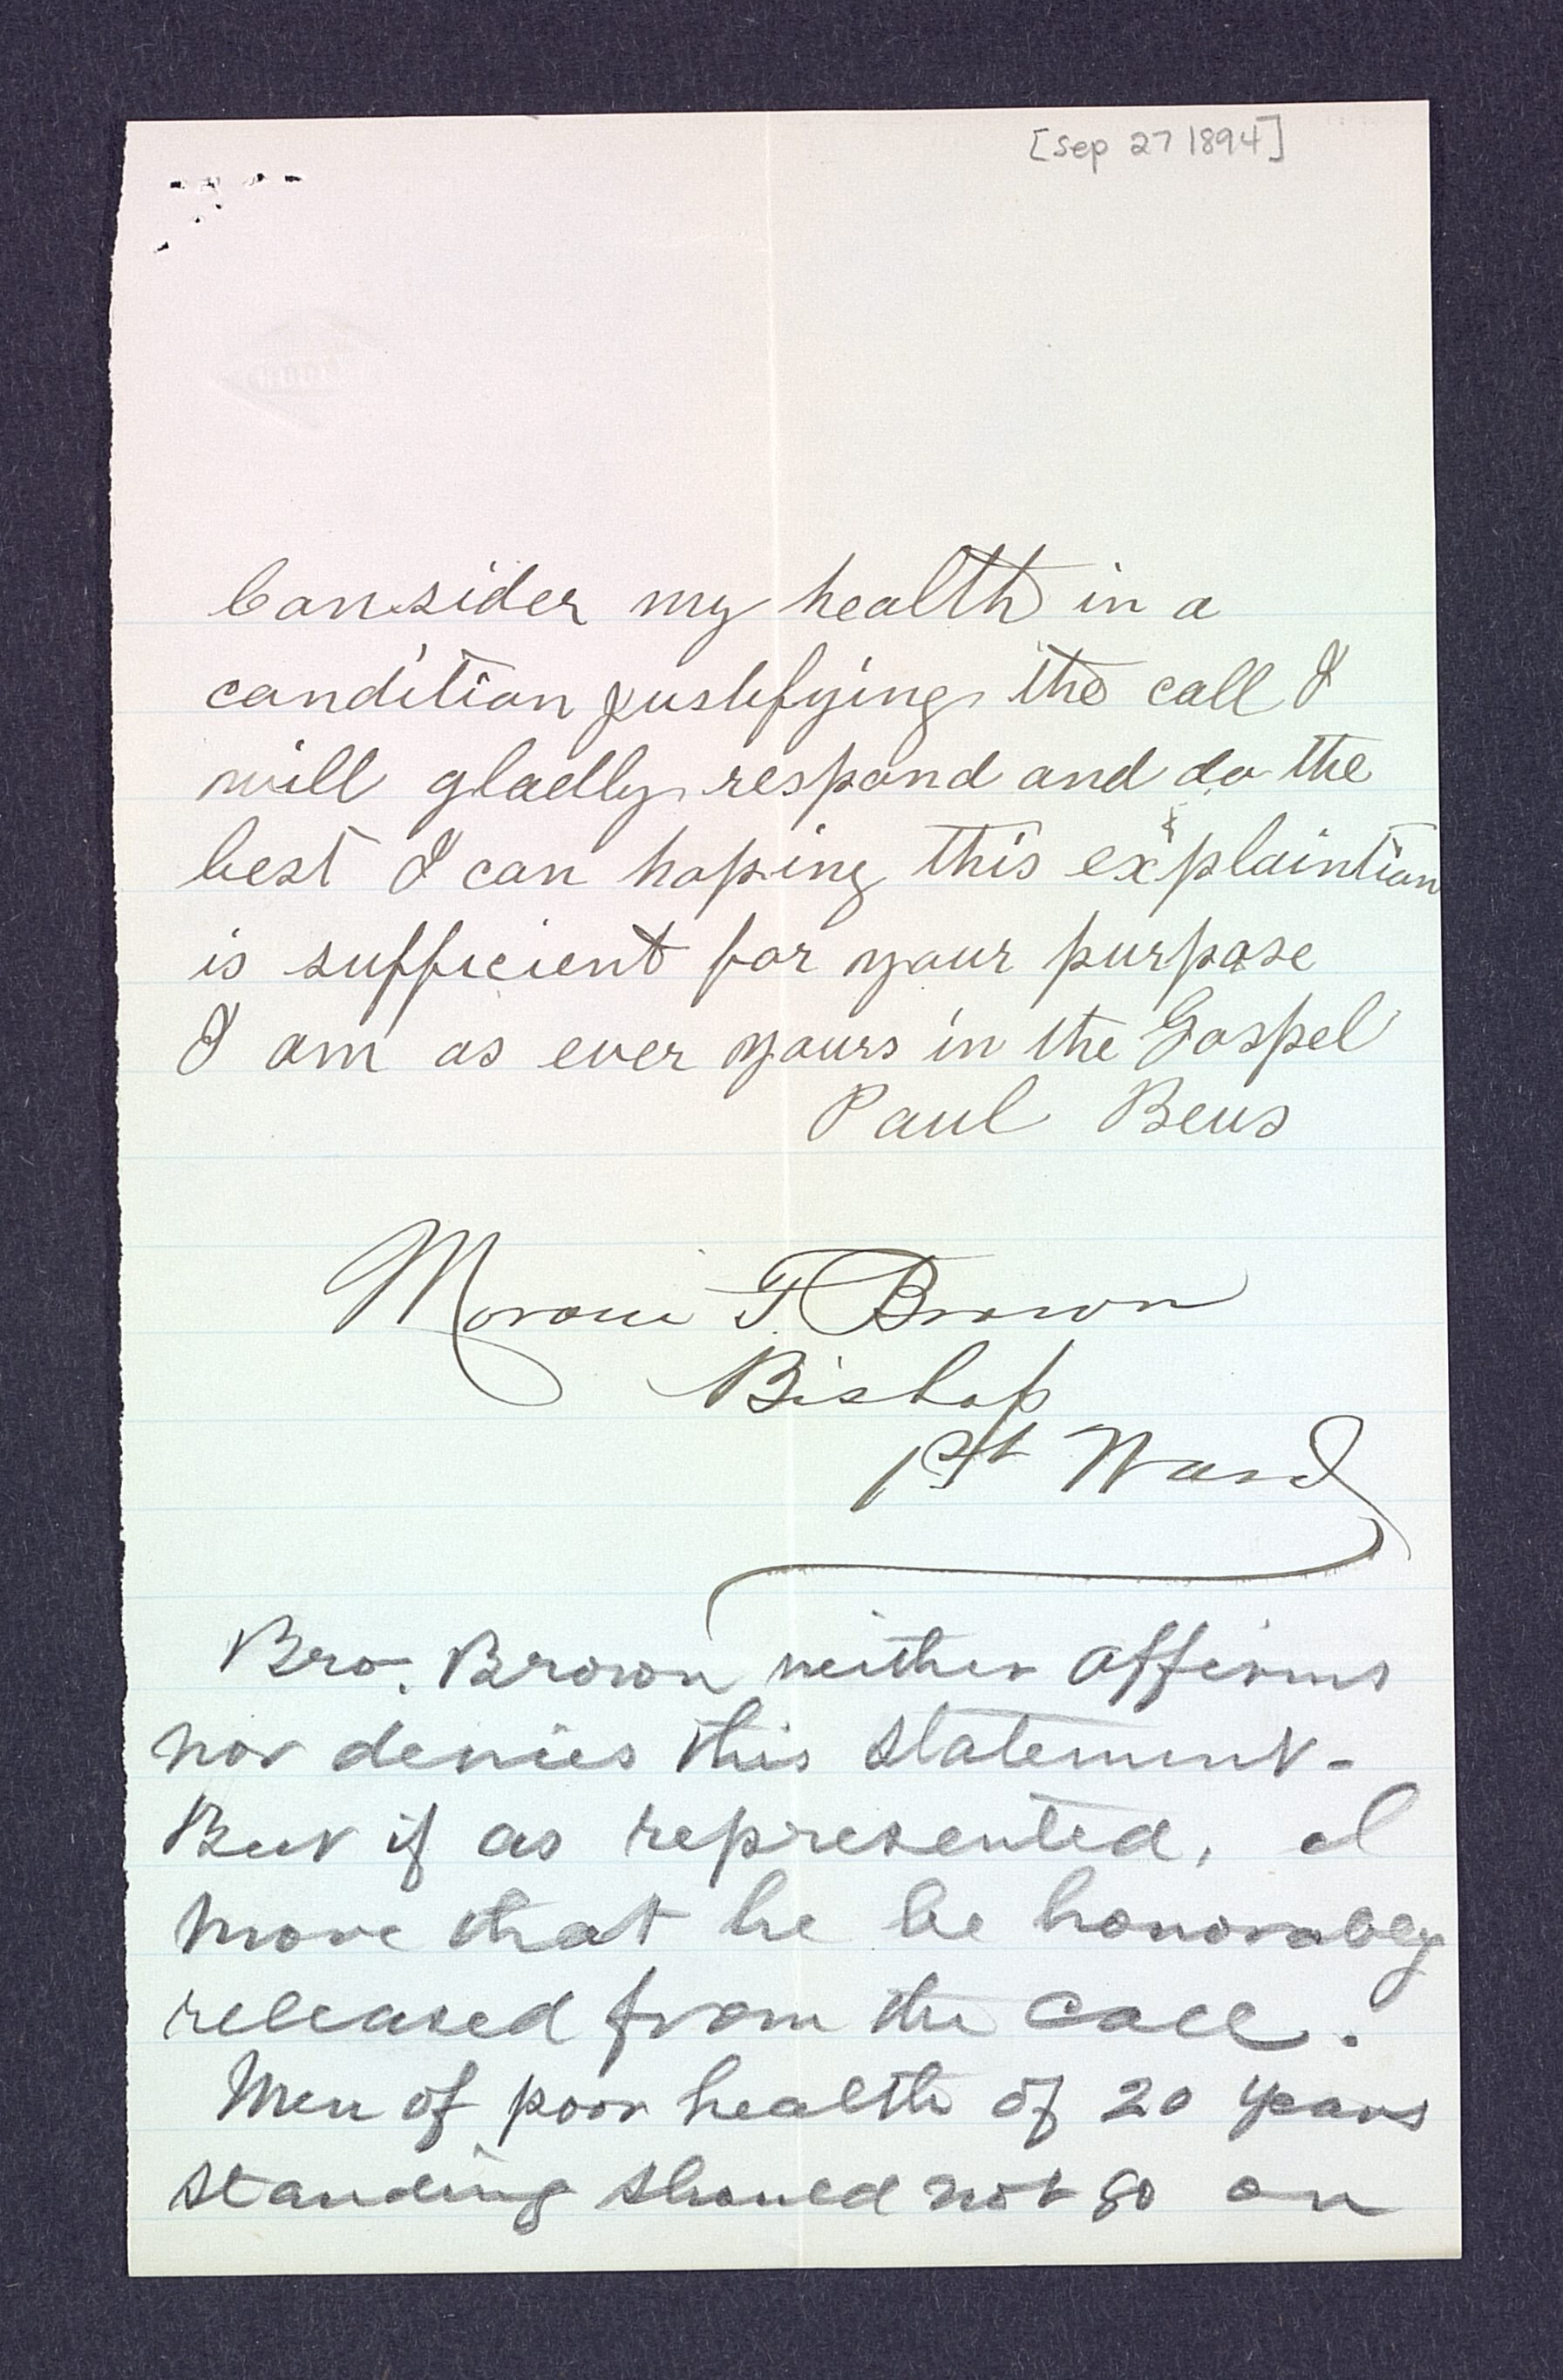 [Sep 27 1894]
Consider my health in a
condition justifying the call I
will gladly respond and do the
best I can hoping this explaintion
is sufficient for your purpose
I am as ever yours in the Gospel
Paul Beus
Moroni F Brown
Bishop
1st Ward
Bro. Brown neither affirms
nor denies this statement -
But if as represented, I
move that he be honorably
released from the call.
Men of poor health of 20 years
standing should not go on